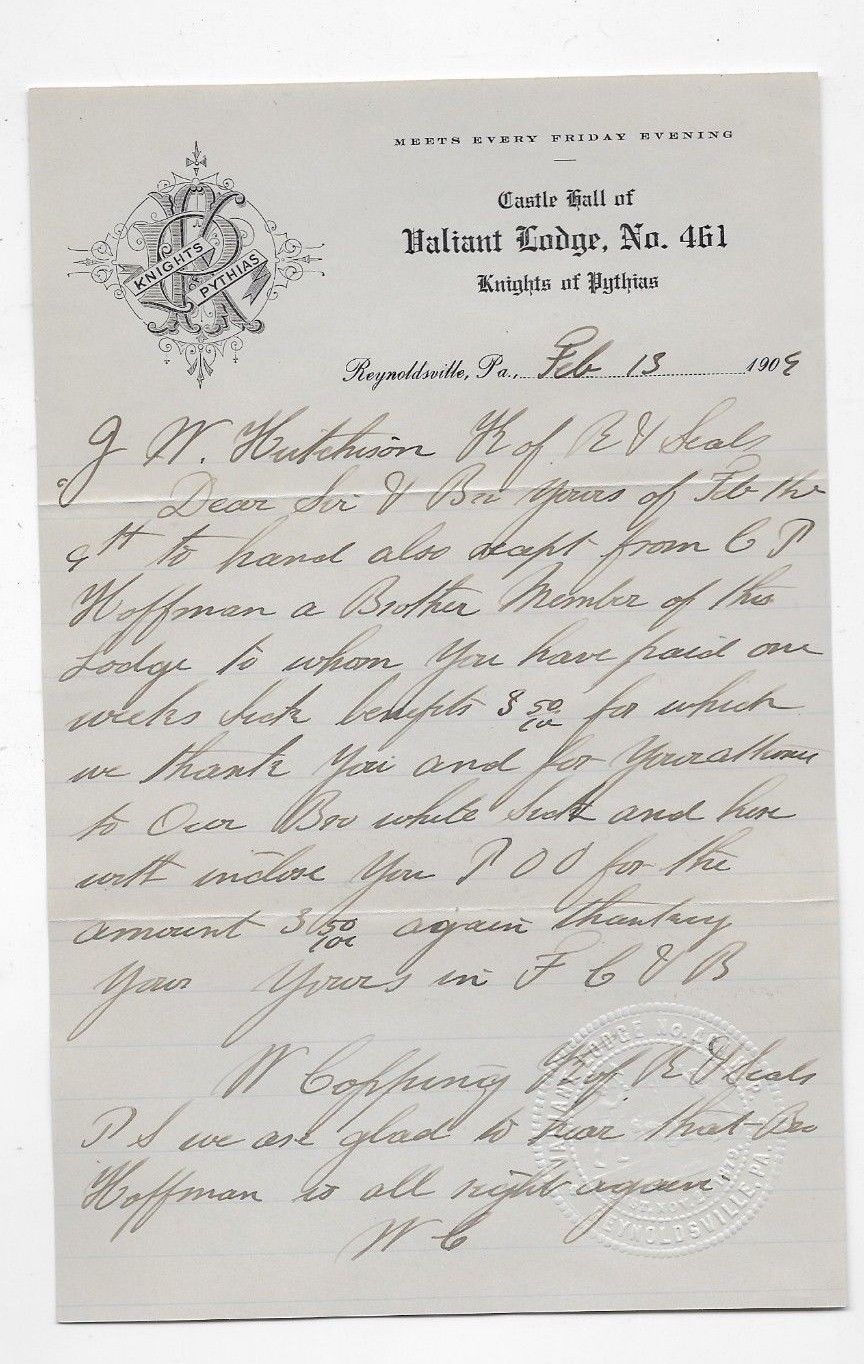 MEETS EVERY FRIDAY EVENING
Castle Hall of
Valiant Lodge, No. 461
Knights of Pythias
KNIGHTS
PYTHIAS
Reynoldsville, Pa., Feb 13 1909
J W. Hutchison K of R & Seals
Dear Sir & Bro Yours of Feb the
9th to hand also recept from C P
Hoffman a Brother Member of this
Lodge to whom You have paid one
weeks Sick benefits $ 50/100 for which
we thank You and for Your
to Our Bro while Sick and here
with inclose You P O O for the
amount 50/100 again thanking
Your Yours in F C & B
W Copping K of R & Seals
P S we are glad to hear that Bro
Hoffman is all right again.
W C
VALIANT LODGE NO. 461
REYNOLDSVILLE, PA.